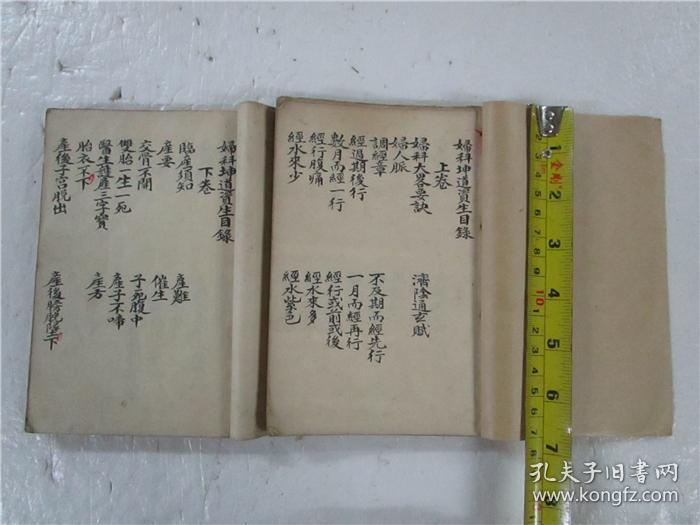 婦科坤道資生目錄
上卷
婦科大畧要訣
濟陰通玄賦
婦人脈
調經章
不及期而經先行
經過期後行
一月而經再行
數月而經一行
經行或前或後
經行腹痛
經水來多
經水來少
經水紫色
婦科坤道資生目錄
下卷
臨產須知
產難
產要
催生
交骨不開
子死腹中
雙胎一生一死
產子不啼
醫生難產三字實
產方
胎衣不下
產後子宮脫出
產後膀脱墜下
1
2
3
4
5
6
7
8
10
孔夫子旧书网
www.kongfz.com